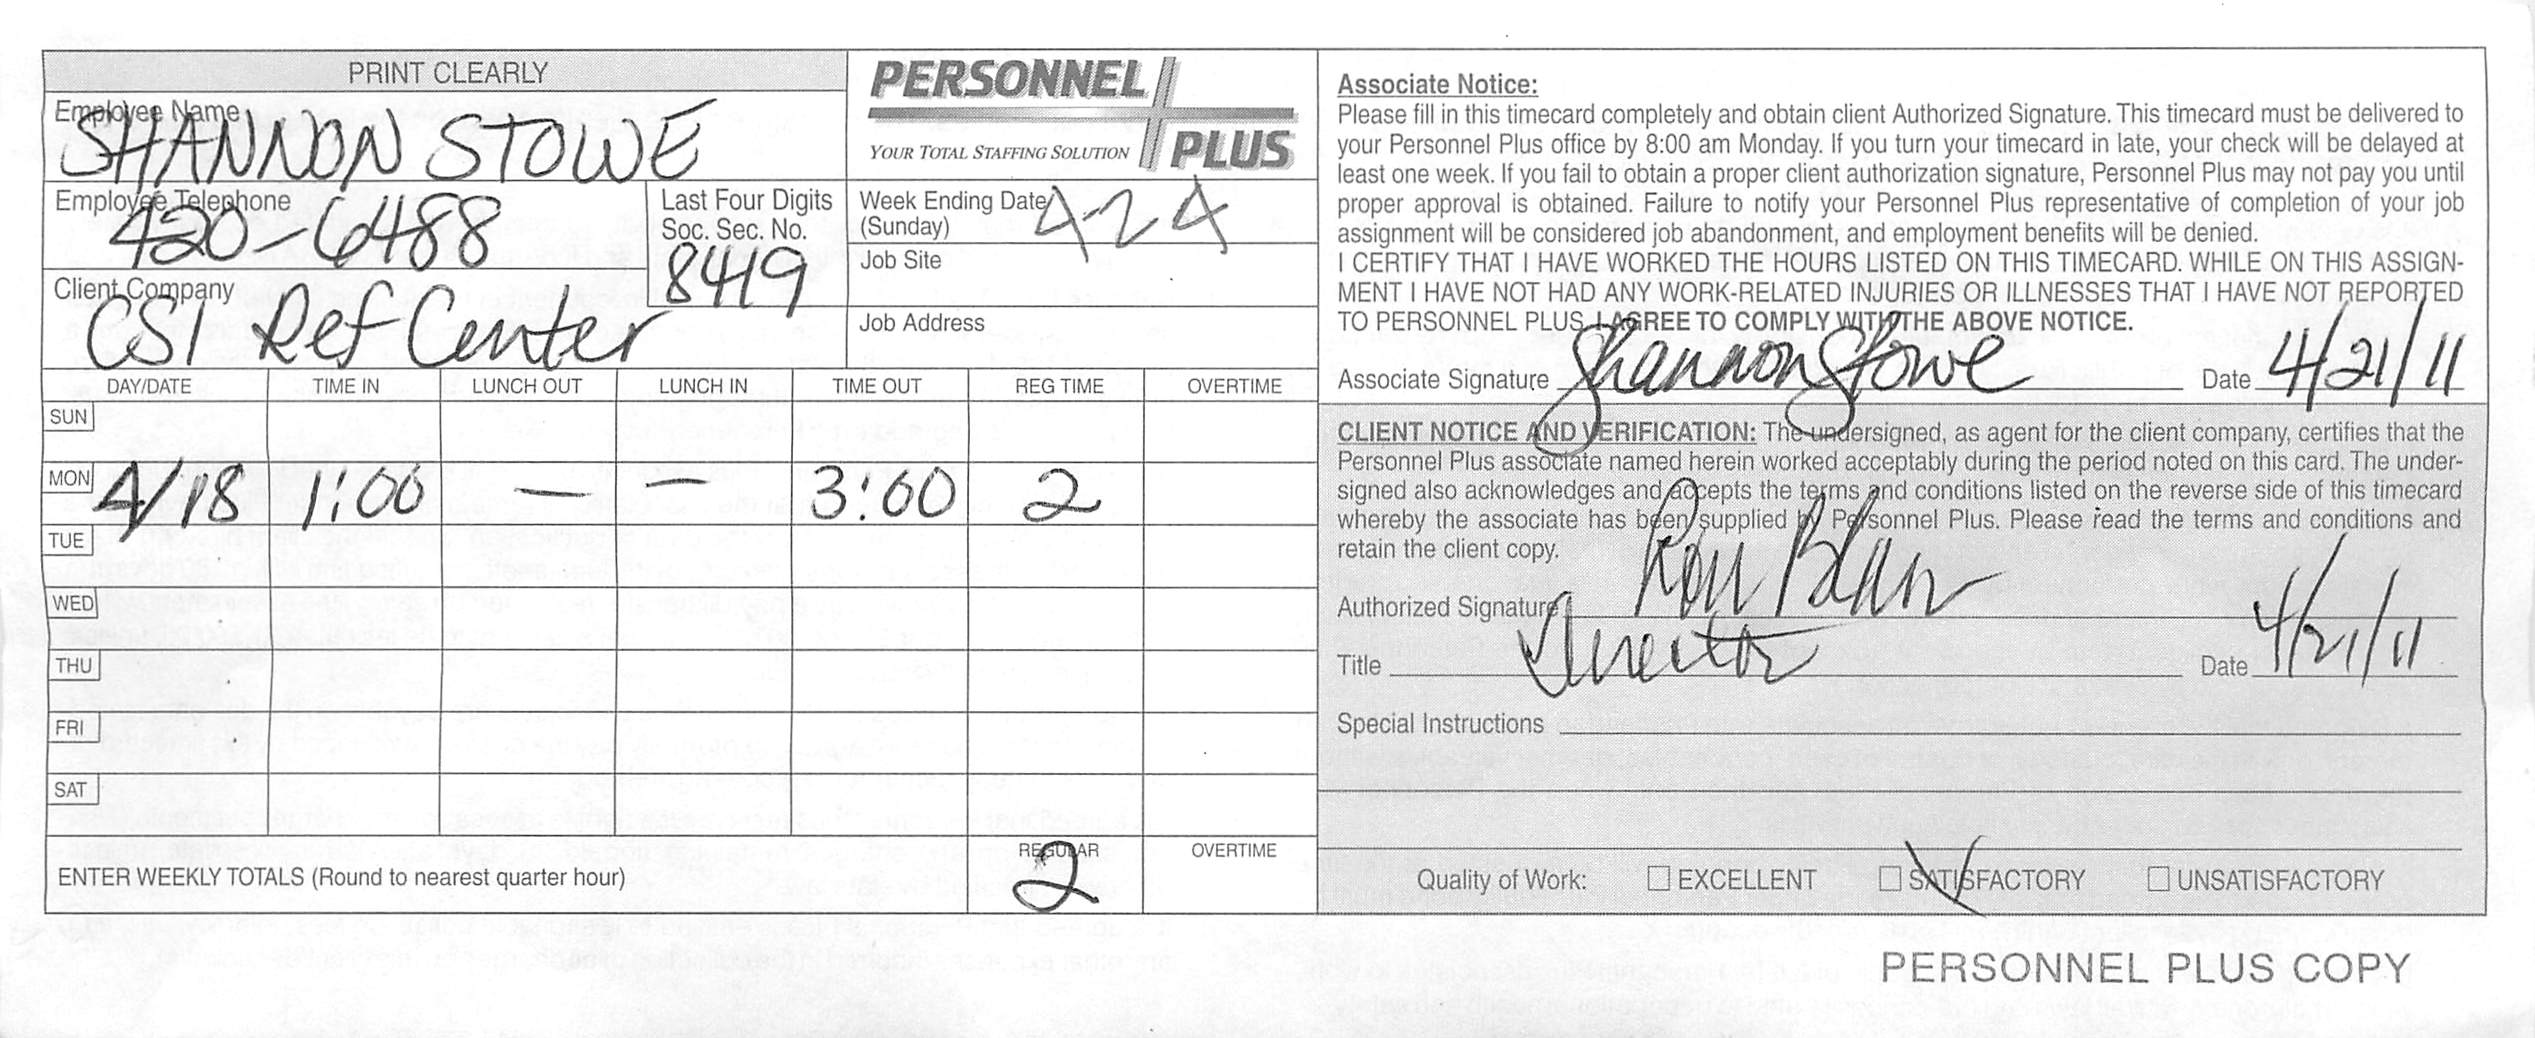 PRINT CLEARLY
Employee Name
SHANNON STOWE
Employee Telephone
420-6488
Last Four Digits
Soc. Sec. No.
8419
Client Company
CSI Ref Center
PERSONNEL
PLUS
YOUR TOTAL STAFFING SOLUTION
Week Ending Date
(Sunday)
4-24
Job Site
Job Address
DAY/DATE TIME IN LUNCH OUT LUNCH IN TIME OUT REG TIME OVERTIME
SUN
MON 4/18 1:00 — — 3:00 2
TUE
WED
THU
FRI
SAT
ENTER WEEKLY TOTALS (Round to nearest quarter hour)
REGULAR OVERTIME
2
Associate Notice:
Please fill in this timecard completely and obtain client Authorized Signature. This timecard must be delivered to
your Personnel Plus office by 8:00 am Monday. If you turn your timecard in late, your check will be delayed at
least one week. If you fail to obtain a proper client authorization signature, Personnel Plus may not pay you until
proper approval is obtained. Failure to notify your Personnel Plus representative of completion of your job
assignment will be considered job abandonment, and employment benefits will be denied.
I CERTIFY THAT I HAVE WORKED THE HOURS LISTED ON THIS TIMECARD. WHILE ON THIS ASSIGN-
MENT I HAVE NOT HAD ANY WORK-RELATED INJURIES OR ILLNESSES THAT I HAVE NOT REPORTED
TO PERSONNEL PLUS. I AGREE TO COMPLY WITH THE ABOVE NOTICE.
Associate Signature Shannon Stowe Date 4/21/11
CLIENT NOTICE AND VERIFICATION: The undersigned, as agent for the client company, certifies that the
Personnel Plus associate named herein worked acceptably during the period noted on this card. The under-
signed also acknowledges and accepts the terms and conditions listed on the reverse side of this timecard
whereby the associate has been supplied by Personnel Plus. Please read the terms and conditions and
retain the client copy.
Authorized Signature Ron
Title Director Date 4/21/11
Special Instructions
Quality of Work: EXCELLENT SATISFACTORY UNSATISFACTORY
PERSONNEL PLUS COPY